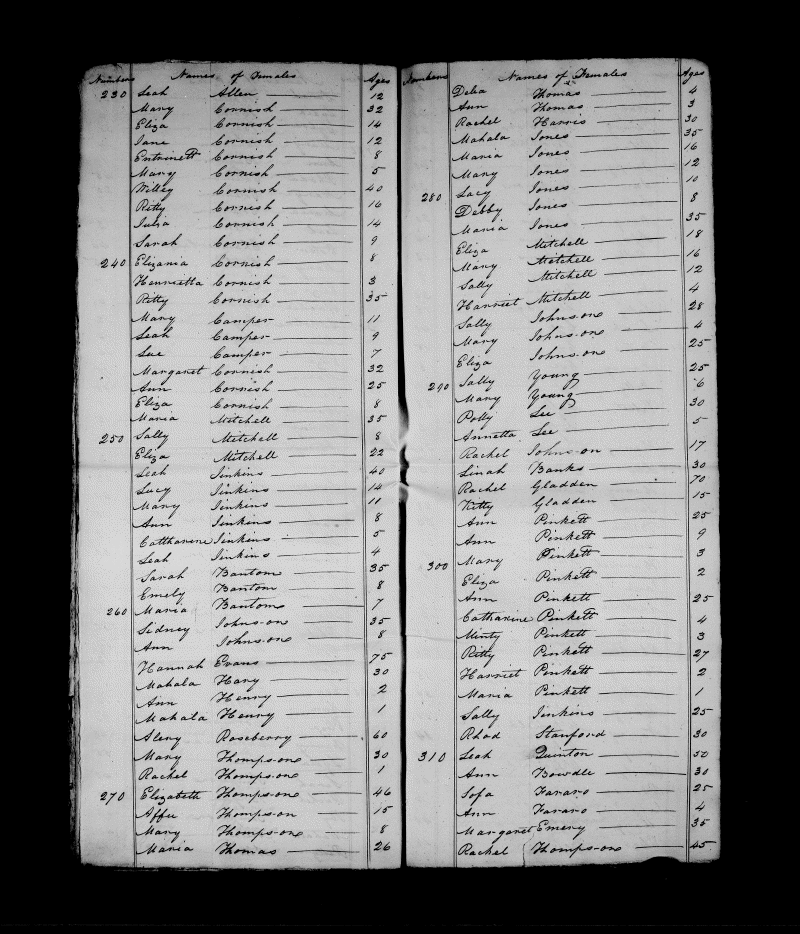 Numbers Names of Females Ages
230 Leah Allen 12
Mary Cornish 32
Eliza Cornish 14
Jane Cornish 12
Cornish 8
Mary Cornish 5
Willey Cornish 40
Ritty Cornish 16
Julia Cornish 14
Sarah Cornish 9
240 Elizania Cornish 8
Henrietta Cornish 3
Ritty Cornish 35
Mary Camper 11
Leah Camper 9
Sue Camper 7
Margaret Cornish 32
Ann Cornish 25
Eliza Cornish 8
Maria Mitchell 35
250 Sally Mitchell 8
Eliza Mitchell 22
Leah Jinkins 40
Lucy Jinkins 14
Mary Jinkins 11
Ann Jinkins 8
Cattharine Jinkins 5
Leah Jinkins 4
Sarah Bantom 35
Emely Bantom 8
260 Maria Bantom 7
Sidney Johnsone 35
Ann Johnsone 8
Hannah Evans 75
Mahala Hary 30
Ann Henry 2
Mahala Henry 1
Aleny Roseberry 60
Mary Thompsone 30
Rachel Thompsone 1
270 Elizabeth Thompsone 46
Affee Thompson 15
Mary Thompsone 8
Maria Thomas 26
Numbers Names of Females Ages
Delea Thomas 4
Ann Thomas 3
Rachel Harris 30
Mahala Jones 35
Maria Jones 16
Mary Jones 12
280 Lacy Jones 10
Debby Jones 8
Maria Jones 35
Eliza Mitchell 18
Mary Mitchell 16
Sally Mitchell 12
Harriet Mitchell 4
Sally Johnsone 28
Mary Johnsone 4
Eliza Johnsone 25
290 Sally Young 25
Mary Young 6
Polly Lee 30
Annetta Lee 5
Rachel Johnson 17
Linah Banks 30
Rachel Gladden 70
Kitty Gladden 15
Ann Pinkett 25
Ann Pinkett 9
300 Mary Pinkett 3
Eliza Pinkett 2
Ann Pinkett 25
Catharine Pinkett 4
Minty Pinkett 3
Ritty Pinkett 27
Harriet Pinkett 2
Maria Pinkett 1
Sally Jinkins 25
Rhod Stanford 30
310 Leah Quinton 50
Ann Bowdle 30
Sofa Fararo 25
Ann Fararo 4
Margaret Emery 35
Rachel Thompsone 45